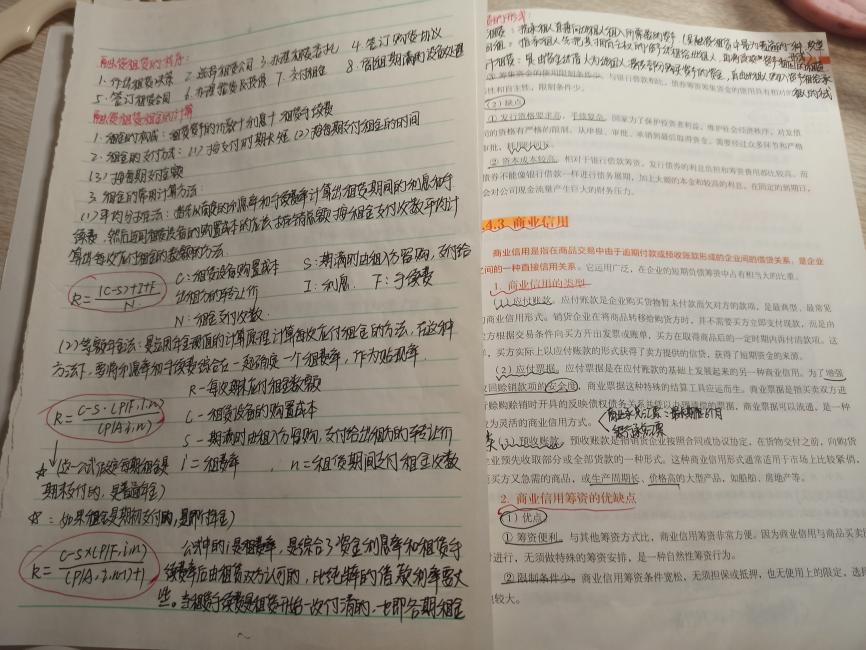 融资租赁的程序:
1.作出租赁决策 2.选择租赁公司 3.办理租赁委托 4.签订购货协议
5.签订租赁合同 6.办理验货及投保 7.交付租金 8.租赁期满的设备处理
融资租赁租金的计算
1.租金的构成:租赁资产的价款+利息+租赁手续费
2.租金的支付方法:(1)按支付的时期长短 (2)按每期支付租金的时间
(3)按每期支付金额
3.租金的常用计算方法:
(1)平均分摊法:
续费,然后连同租赁设备的购置成本的 按租金支付次数平均计
算出每次应付租金的数额的方法.
R=(C-S)+I+F/N C:租赁设备购置成本 S:期满时由租入方留购,支付给
出租方的转让价 I:利息 F:手续费
N:租金支付次数
(2)等额年金法:是运用年金现值的计算原理计算每次应付租金的方法,在这种
方法下,要将利息率和手续费综合在一起确定一个租费率,作为贴现率.
R-每次期末应付租金数额
R=C-S·(P/F,i,n)/(P/A,i,n) C-租赁设备的购置成本
S-期满时由租入方留购,支付给出租方的转让价
☆ (这一公式假定每期租金是 i-租费率, n-租赁期间支付租金次数
期末支付的,是普通年金)
☆:如果租金是期初支付的,是即付年金)
R=C-S×(P/F,i,n)/(P/A,i,n-1)+1 公式中的i是租费率,是综合了资金利息率和租赁手
续费率后由租赁双方认可的,比纯粹的借款利率要大
些。当租赁手续费是租赁开始一次付清的,也即各期租金
性和自主性,限制条件少。
(2)缺点
①发行资格要求高,手续复杂。国家为了保护投资者利益,维护社会经济秩序,对发债
的资格有严格的限制。从申报、审批、承销到最后取得资金,需要经过众多环节和严格
审批,
②资本成本较高。相对于银行借款筹资,发行债券的利息负担和筹资费用都比较高。而
债券不能像银行借款一样进行债务展期,加上大额的本金和较高的利息,在固定的到期日,
会对公司现金流量产生巨大的财务压力。
4.3 商业信用
商业信用是指在商品交易中由于逾期付款或预收账款形成的企业间的借贷关系,是企业
之间的一种直接信用关系。它运用广泛,在企业的短期负债筹资中占有相当大的比重。
1. 商业信用的类型
(1)应付账款。应付账款是企业购买货物暂未付款而欠对方的款项,是最典型、最常见
的商业信用形式。销货企业在将商品转移给购货方时,并不需要买方立即支付现款,而是由
方根据交易条件向买方开出发票或账单,买方在取得商品后的一定时期内再付清款项。这
,买方实际上以应付账款的形式获得了卖方提供的信贷,获得了短期资金的来源。
(2)应付票据。应付票据是在应付账款的基础上发展起来的另一种商业信用。为了增强
收回赊销款项的安全度,商业票据这种特殊的结算工具应运而生。商业票据是指买卖双方进
行赊购赊销时开具的反映债权债务关系并 的票据,商业票据可以流通,是一种
为灵活的商业信用方式。 商业承兑汇票:最长期限6个月
银行承兑汇票
(3)预收账款。预收账款是指销货企业按照合同或协议约定,在货物交付之前,向购货
企业预先收取部分或全部货款的一种形式。这种商业信用形式通常适用于市场上比较紧俏,
买方又急需的商品,或生产周期长、价格高的大型产品,如船舶、房地产等。
2. 商业信用筹资的优缺点
(1)优点
①筹资便利。与其他筹资方式比,商业信用筹资非常方便。因为商业信用与商品买卖
时进行,无须做特殊的筹资安排,是一种自然性筹资行为。
②限制条件少。商业信用筹资条件宽松,无须担保或抵押,也无使用上的限定,选择
也较大。